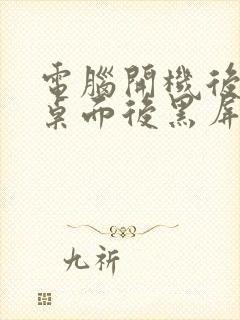 電腦開機後
桌面後黑屏
九祈